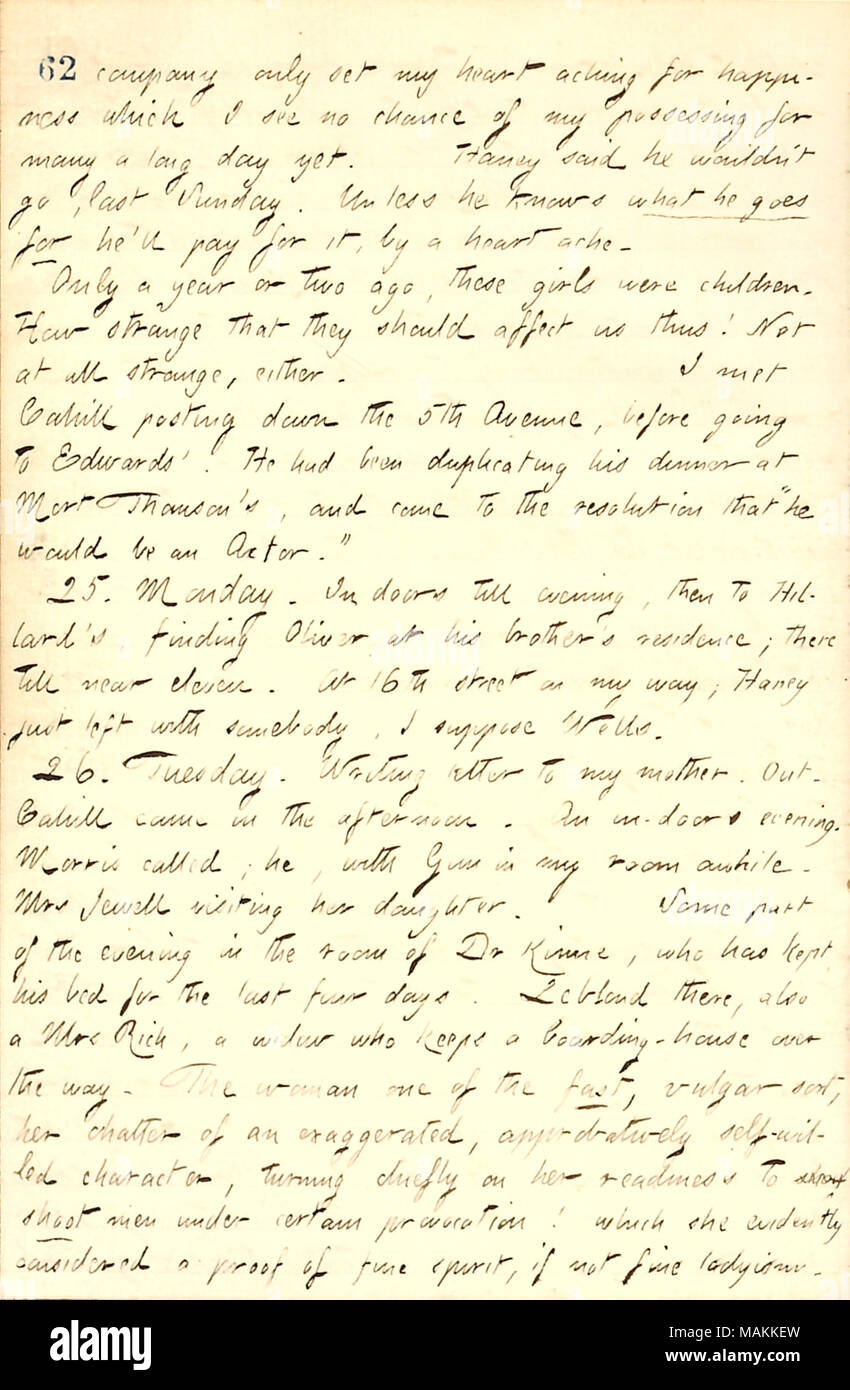 62 company only set my heart aching for happi-
ness which I see no chance of my possessing for
many a long day yet. Haney said he wouldn't
go, last Sunday. Unless he knows what he goes
for he'll pay for it, by a heart ache.
Only a year or two ago, these girls were children.
How strange that they should affect us thus! Not
at all strange, either. I met
Cahill posting down the 5th Avenue, before going
to Edwards'. He had been duplicating his dinner at
Mort Thomson's, and come to the resolution that "he
would be an Actor."
25. Monday. In doors till evening, then to Hil-
lard's, finding Oliver at his brother's residence; there
till near eleven. At 16th street on my way; Haney
just left with somebody, I suppose Wells.
26. Tuesday. Writing letter to my mother. Out.
Cahill came in the afternoon. An in-doors evening.
Morris called; he, with Gun in my room awhile.
Mrs Jewell visiting her daughter. Some part
of the evening in the room of Dr Kinne, who has kept
his bed for the last four days. Leblond there, also
a Mrs Rich, a widow who keeps a boarding-house over
the way. The woman one of the fast, vulgar sort,
her chatter of an exaggerated, approbatively self-wil-
led character, turning chiefly on her readiness to
shoot men under certain provocation! which she evidently
considered a proof of fine spirit, if not fine ladyism.
alamy
Image ID: MAKKEW
www.alamy.com